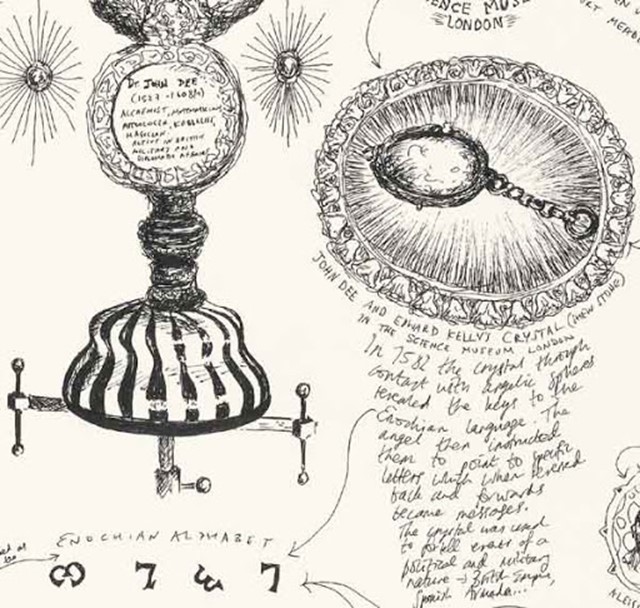 ENCE MUSE
LONDON
Dr. JOHN DEE
(1527 - 1608/9)
ALCHEMIST, MATHEMATICIAN
ASTROLOGER, KABBALIST,
MAGICIAN.
IN BRITISH
MILITARY AND
JOHN DEE AND EDWARD KELLY'S CRYSTAL (SHEW STONE)
IN THE SCIENCE MUSEUM LONDON
In 1582 the crystal through
contact with angelic spheres
revealed the keys to the
Enochian language. The
angel then instructed
them to point to specific
letters which when revered
back and forwards
became messages.
The crystal was used
to fortell events of a
political and military
nature → British Empire,
Spanish Armada...
ENOCHIAN ALPHABET
ALEIS